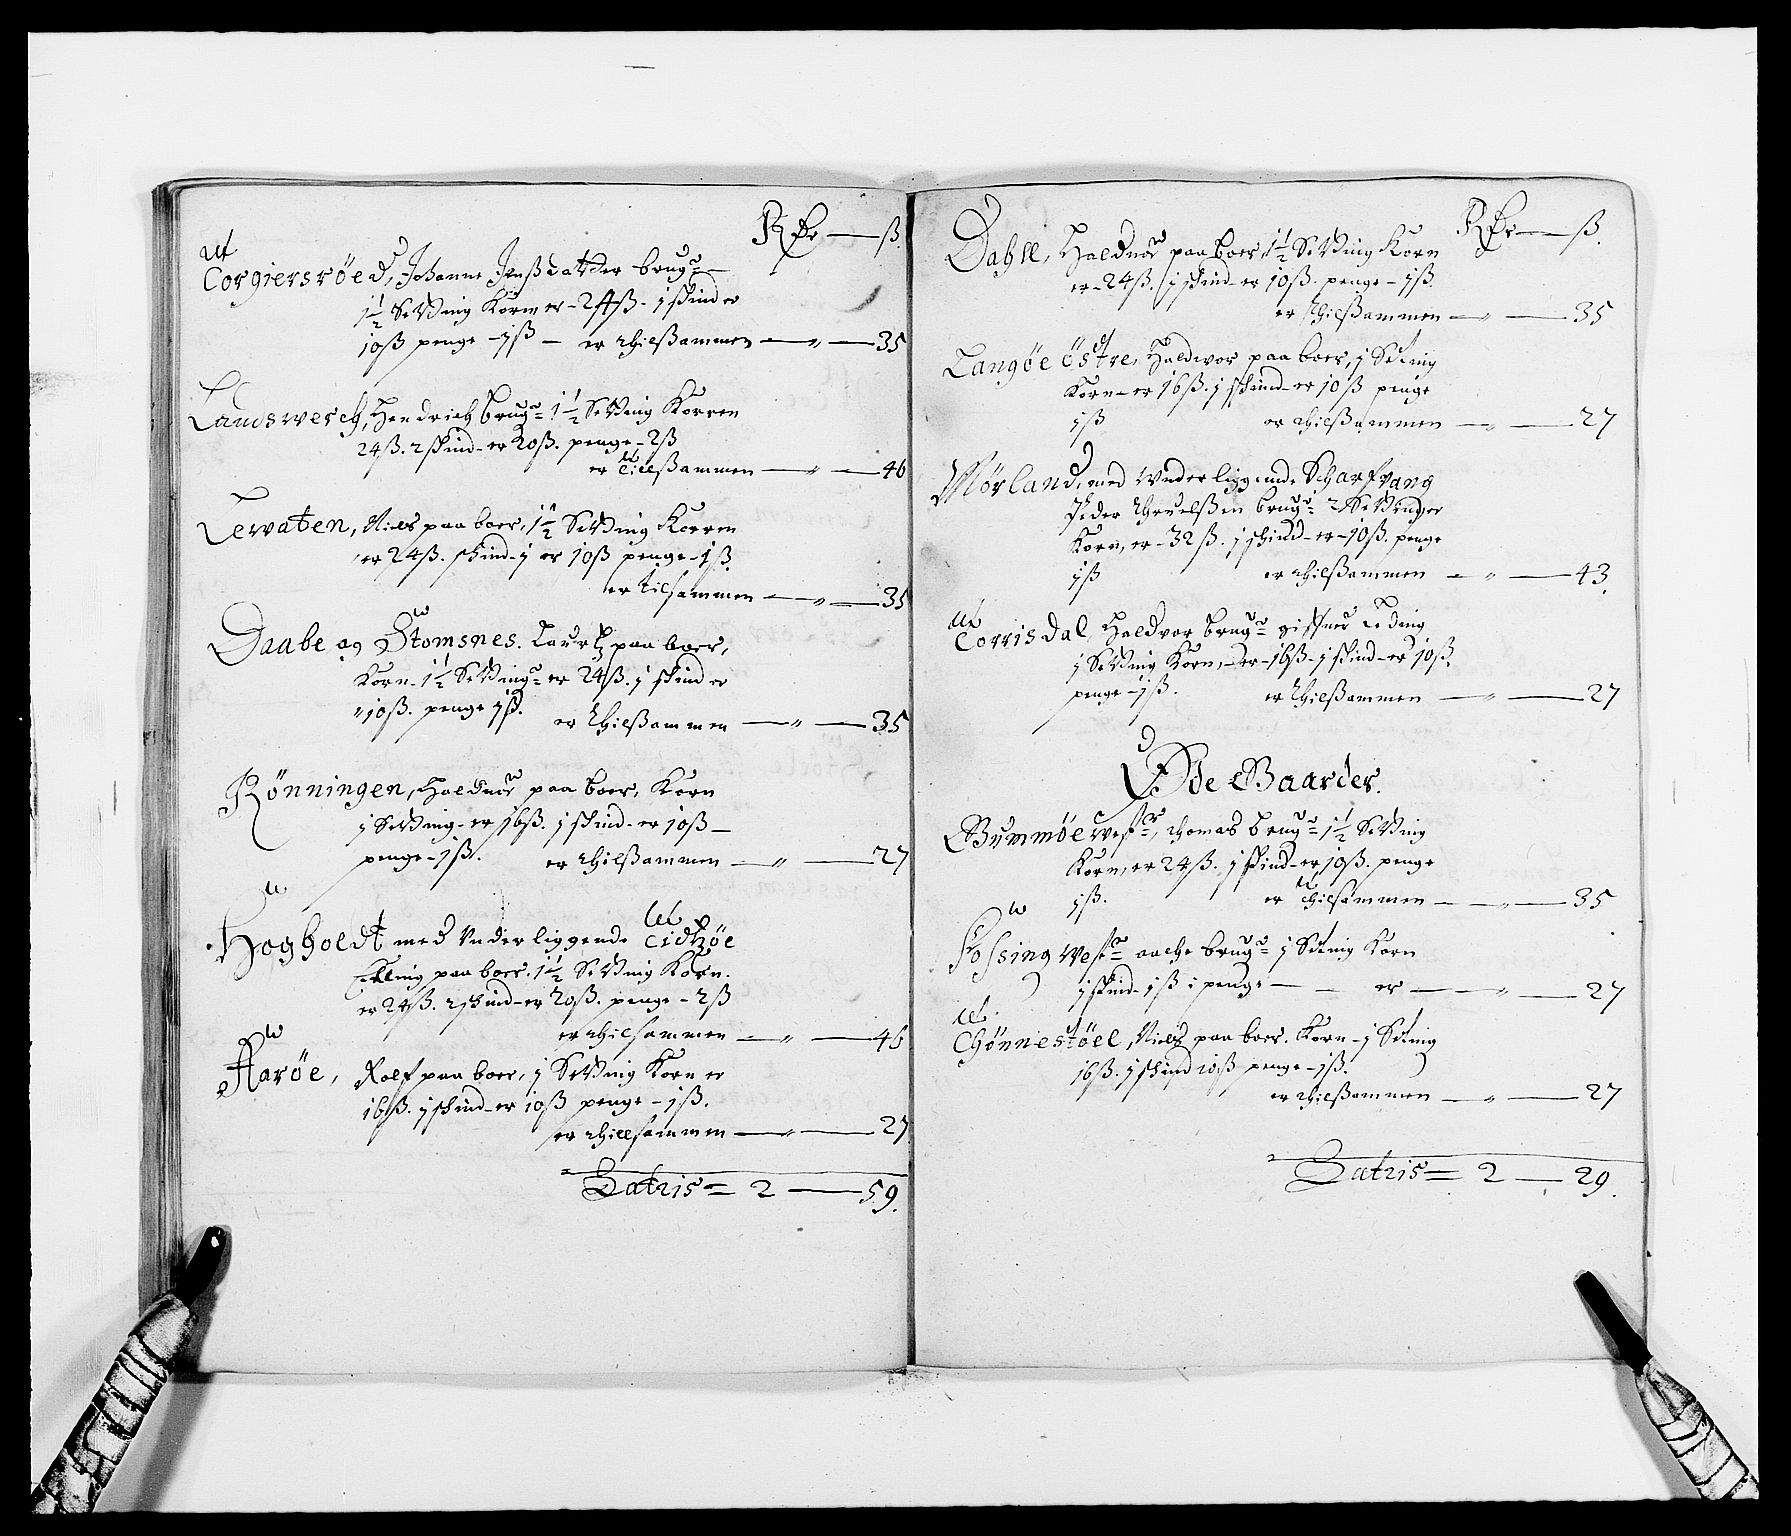 Rdr — ß.
Torgiersröed, Johanne Jenßdatter brugr
1½ Setting Korn er - 24ß. j skind er
10ß penge - jß - er thilßammen — „ — 35
Landsverch, Hendrich brugr 1½ Setting Korren
24ß. 2 skind - er 20ß. penge - 2ß
er Tillßammen — „ — 46
Lewaten, Niels paa boer, 1½ Setting Korren
er 24ß. skind - j er 10ß penge - 1ß.
er tilsammen — „ — 35
Daabe og Stomsnes. Lauritz paa boer,
Korn - 1½ Settingr er 24ß. j skind er
10ß. penge jß. er thilßammen — „ — 35
Rönningen, Haldvor paa boer, Korn
j Setting - er 16ß. j skind - er 10ß —
penge - jß. er thilßammen — „ — 27
Hogholdt med Underliggende Tidtzöe
Elling paa boer. 1½ Setting Korn.
er 24ß. 2 skind - er 20ß. penge - 2ß
er thilsammen — „ — 46
Aaröe, Rolf paa boer, j Setting Korn er
16ß. j skind - er 10ß penge - jß.
er thillsammen — „ — 27
Latris = 2 — 59.
Rdr — ß.
Dahll, Haldvor paa boer, 1½ Setting Korn
er - 24ß. j skind - er 10ß. penge - jß.
er thilßammen — „ — 35
Langöe östre, Haldvor paa boer, j Setting
Korn - er 16ß. j skind - er 10ß penge
jß er thilßammen — „ — 27
Mörland, med Underliggende Scharfvang
Peder Thruelßen brugr 2 Settinger
Korn, er - 32ß. j skind - er - 10ß. penge
jß er thilßammen — „ — 43.
Torrisdal, Haldvor brugr giffuer Leding
j Setting Korn, - er - 16ß - j skind - er 10ß.
penge - jß. er thilßammen — „ — 27
Öde Gaarder.
Gummöe westr, Thomas brugr 1½ Setting
Korn, er 24ß. j skind - er 10ß. penge
jß. er thilsammen — „ — 35
Fossing westr aache brugr j Setting Korn
j skind - jß i penge — er — „ — 27
Thönnestöel, Niels paa boer. Korn - j Setting
16ß. j skind 10ß penge - jß.
er thilßammen — „ — 27
Latris = 2 — 29.